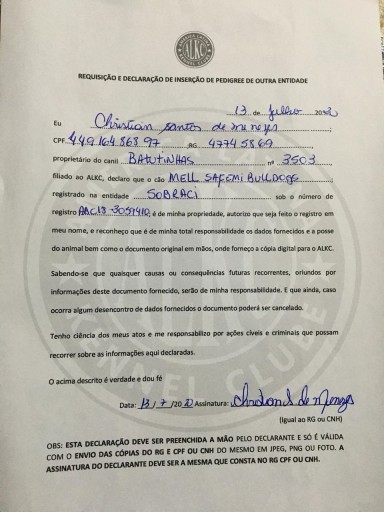 ALKC
REQUISIÇÃO E DECLARAÇÃO DE INSERÇÃO DE PEDIGREE DE OUTRA ENTIDADE
13 de Julho
Eu Christian santos de menezes
CPF 449 164 868 97 RG 4774 5869
proprietário do canil BATUTINHAS nº 3503
filiado ao ALKC, declaro que o cão MELL SAFEMI BULLDOGS
registrado na entidade SOBRACI sob o número de
registro , é de minha propriedade, autorizo que seja feito o registro em
meu nome, e reconheço que é de minha total responsabilidade os dados fornecidos e a posse
do animal bem como o documento original em mãos, onde forneço a cópia digital para o ALKC.
Sabendo-se que quaisquer causas ou consequências futuras recorrentes, oriundos por
informações deste documento fornecido, serão de minha responsabilidade. E que ainda, caso
ocorra algum desencontro de dados fornecidos o documento poderá ser cancelado.
Tenho ciência dos meus atos e me responsabilizo por ações cíveis e criminais que possam
recorrer sobre as informações aqui declaradas.
O acima descrito é verdade e dou fé
Data: 13 / 7 /20 Assinatura:
(Igual ao RG ou CNH)
OBS: ESTA DECLARAÇÃO DEVE SER PREENCHIDA A MÃO PELO DECLARANTE E SÓ É VÁLIDA
COM O ENVIO DAS CÓPIAS DO RG E CPF OU CNH DO MESMO EM JPEG, PNG OU FOTO. A
ASSINATURA DO DECLARANTE DEVE SER A MESMA QUE CONSTA NO RG CPF OU CNH.